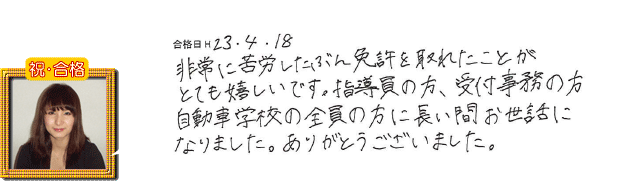 合格日 H23・4・18
祝・合格
非常に苦労したぶん免許を取れたことが
とても嬉しいです。指導員の方、受付事務の方
自動車学校の全員の方に長い間お世話に
なりました。ありがとうございました。